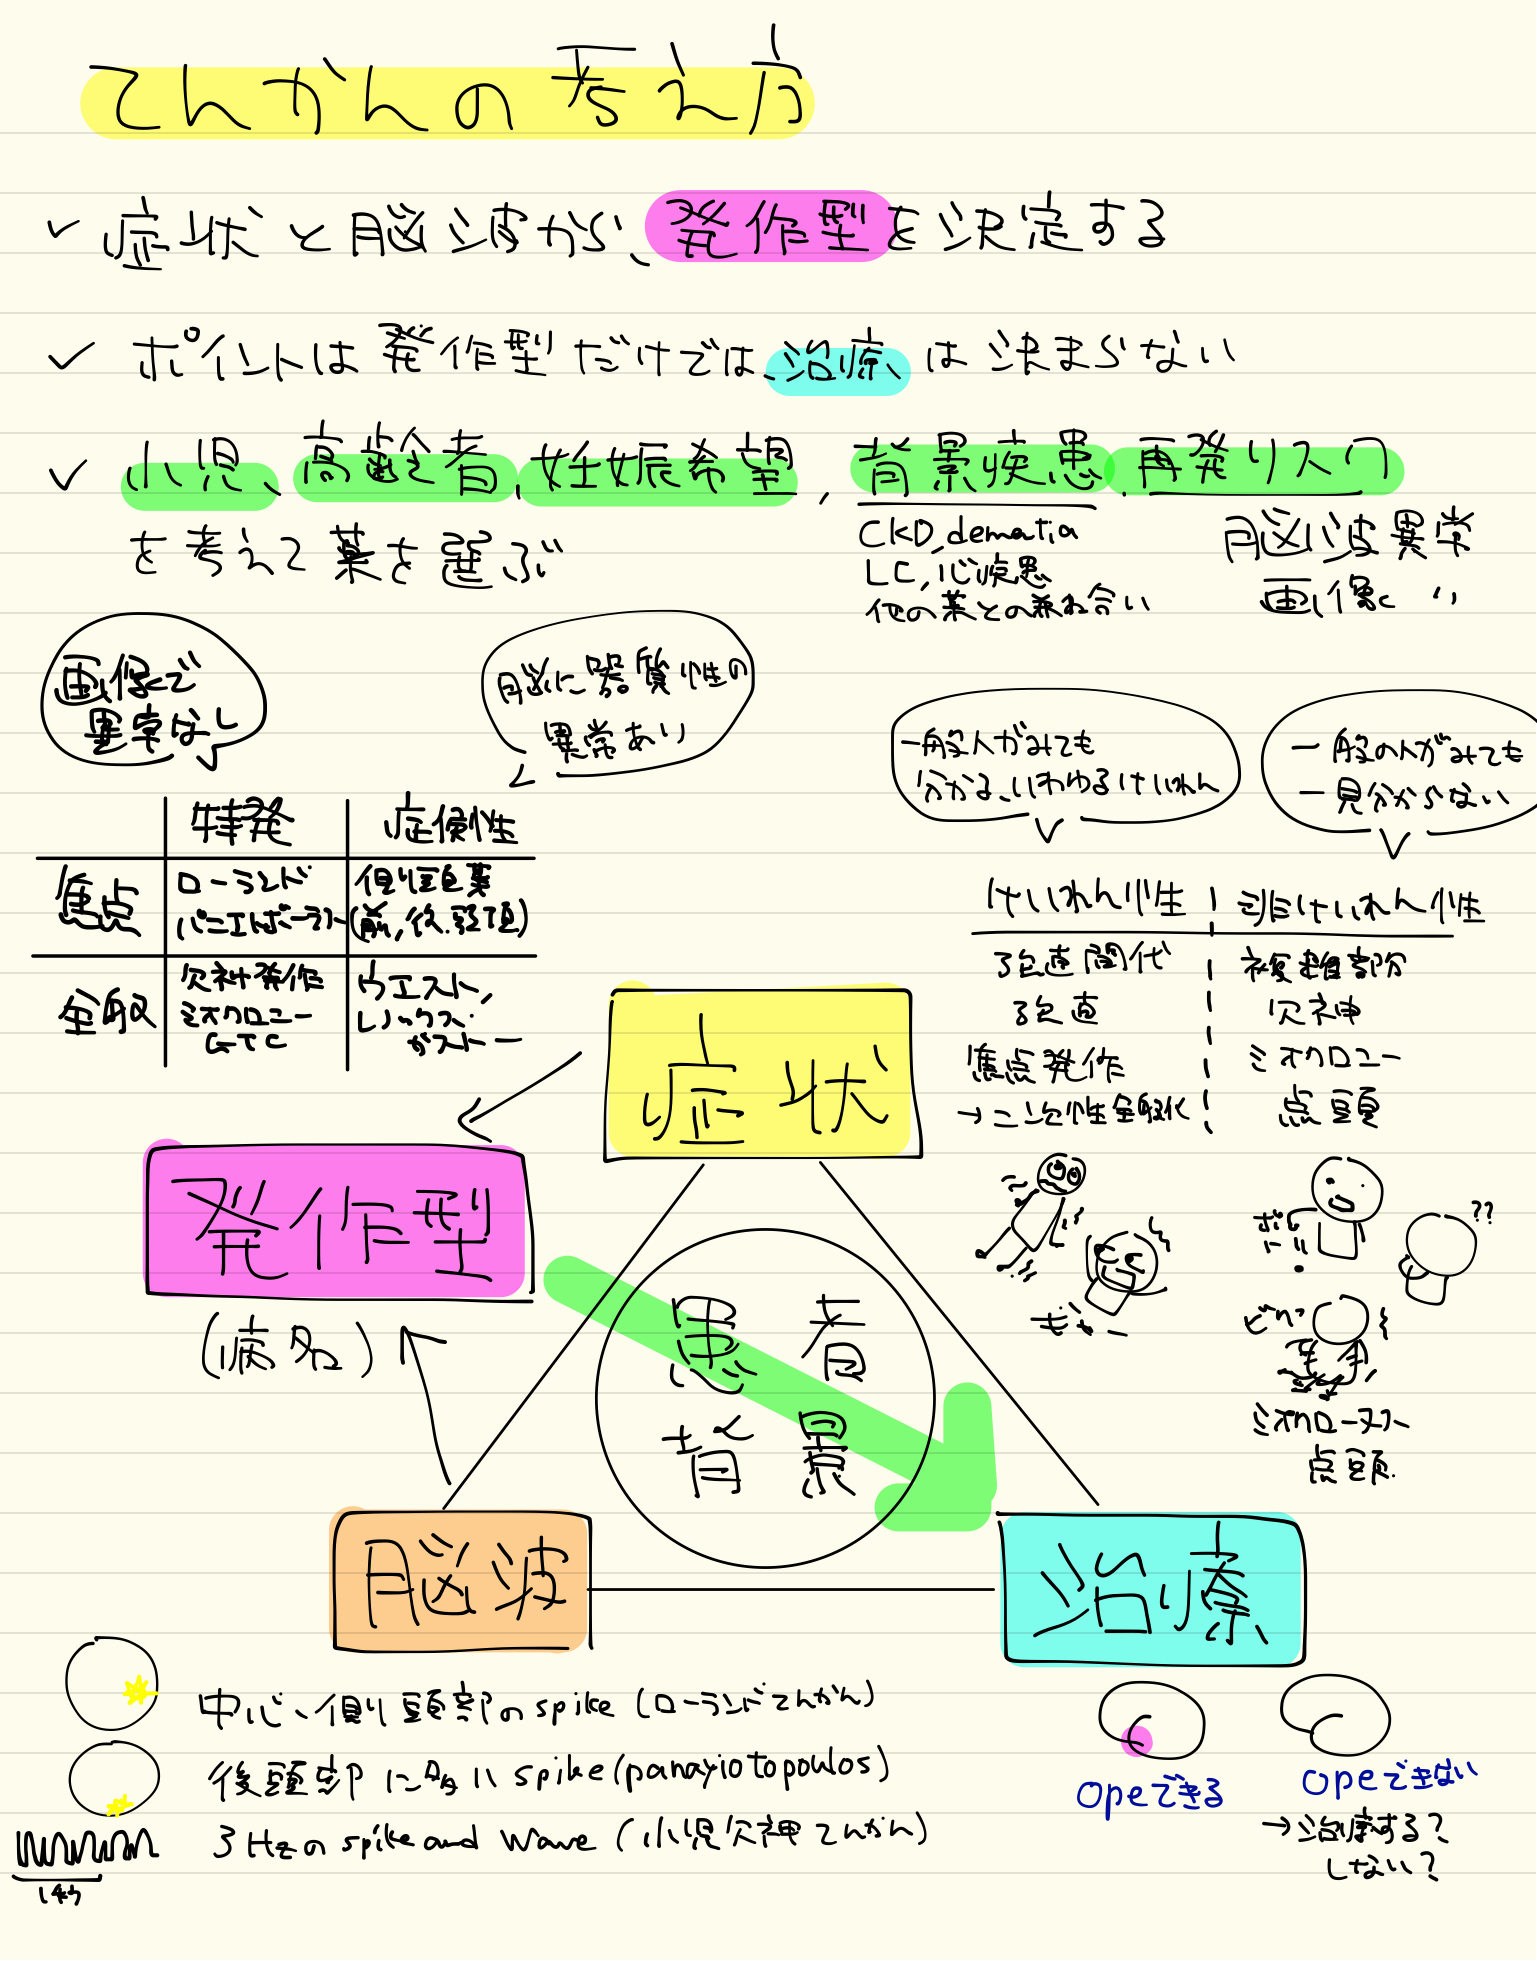 てんかんの考え方
✓ 症状と脳波から、発作型を決定する
✓ ポイントは発作型だけでは、治療は決まらない
✓ 小児、高齢者、妊娠希望、背景疾患、再発リスク
を考えて薬を選ぶ
CKD, dematia
LC, 心疾患
他の薬との兼ね合い
脳波異常
画像 〃
画像で
異常なし
脳に器質性の
異常あり
特発 症候性
焦点 ローランド 側頭葉
パニエトポーラス (前, 後, 頭頂)
全般 欠神発作 ウエスト,
ミオクロニー レノックス・
GTC ガストー
一般人がみても
分かる、いわゆるけいれん
一般の人がみても
一見分からない
けいれん性 非けいれん性
強直間代 複雑部分
強直 欠神
焦点発作 ミオクロニー
→二次性全般化 点頭
症状
発作型
(病名)
患者
背景
脳波
治療
ぎゃー
ボー
??
ビクッ
点頭
中心・側頭部のspike (ローランドてんかん)
後頭部に多いspike (panayiotopoulos)
3Hzのspike and Wave (小児欠神てんかん)
1秒
opeできる
opeできない
→治療する?
しない?